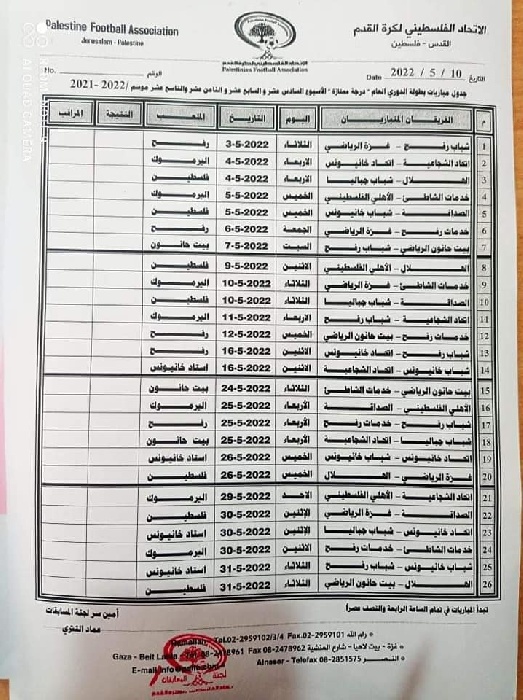 Palestine Football Association
Jerusalem - Palestine
الاتحاد الفلسطيني لكرة القدم
القدس - فلسطين
Palestinian Football Association
No.
الرقم
Date 2022 / 5 / 10 التاريخ
جدول مباريات بطولة الدوري العام "درجة ممتازة" الأسبوع السادس عشر و السابع عشر و الثامن عشر والتاسع عشر موسم /2022-2021
م الفريقان المتباريان اليوم التاريخ الملعب النتيجة المراقب
1 شباب رفح - غزة الرياضي الثلاثاء 3-5-2022 رفح
2 اتحاد الشجاعية - اتحاد خانيونس الأربعاء 4-5-2022 اليرموك
3 الهلال - شباب جباليا الأربعاء 4-5-2022 فلسطين
4 خدمات الشاطئ - الأهلي الفلسطيني الخميس 5-5-2022 اليرموك
5 الصداقة - شباب خانيونس الخميس 5-5-2022 فلسطين
6 خدمات رفح - غزة الرياضي الجمعة 6-5-2022 رفح
7 بيت حانون الرياضي - شباب رفح السبت 7-5-2022 بيت حانون
8 الهلال - الأهلي الفلسطيني الاثنين 9-5-2022 فلسطين
9 خدمات الشاطئ - غزة الرياضي الثلاثاء 10-5-2022 اليرموك
10 الصداقة - شباب جباليا الثلاثاء 10-5-2022 فلسطين
11 اتحاد الشجاعية - شباب رفح الأربعاء 11-5-2022 اليرموك
12 خدمات رفح - بيت حانون الرياضي الخميس 12-5-2022 رفح
13 شباب رفح - اتحاد خانيونس الاثنين 16-5-2022 رفح
14 شباب خانيونس - اتحاد الشجاعية الاثنين 16-5-2022 استاد خانيونس
15 بيت حانون الرياضي - خدمات الشاطئ الثلاثاء 24-5-2022 بيت حانون
16 الأهلي الفلسطيني - الصداقة الأربعاء 25-5-2022 اليرموك
17 شباب رفح - خدمات رفح الأربعاء 25-5-2022 رفح
18 شباب جباليا - اتحاد الشجاعية الأربعاء 25-5-2022 بيت حانون
19 اتحاد خانيونس - شباب خانيونس الخميس 26-5-2022 استاد خانيونس
20 غزة الرياضي - الهلال الخميس 26-5-2022 فلسطين
21 اتحاد الشجاعية - الأهلي الفلسطيني الأحد 29-5-2022 اليرموك
22 الصداقة - غزة الرياضي الاثنين 30-5-2022 فلسطين
23 اتحاد خانيونس - شباب جباليا الاثنين 30-5-2022 استاد خانيونس
24 خدمات الشاطئ - خدمات رفح الاثنين 30-5-2022 اليرموك
25 شباب خانيونس - شباب رفح الثلاثاء 31-5-2022 استاد خانيونس
26 الهلال - بيت حانون الرياضي الثلاثاء 31-5-2022 فلسطين
تبدأ المباريات في تمام الساعة الرابعة والنصف عصرا
أمين سر لجنة المسابقات
رام الله Tel.02-2959102/3/4 Fax.02-2959101
غزة - بيت لاهيا - شارع المنشية Fax 08-2478962
Gaza - Beit
النصر Alnaser - Telefax 08-2851575
E-mail